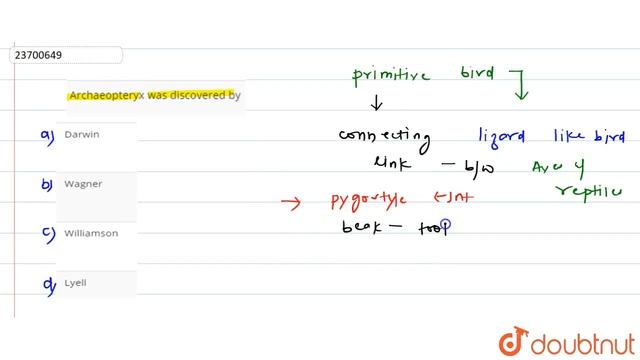 23700649
Archaeopteryx was discovered by
a) Darwin
b) Wagner
c) Williamson
d) Lyell
primitive bird
connecting lizard like bird
link - b/w Aves y
reptile
→ pygostyle ←
beak -
doubtnut